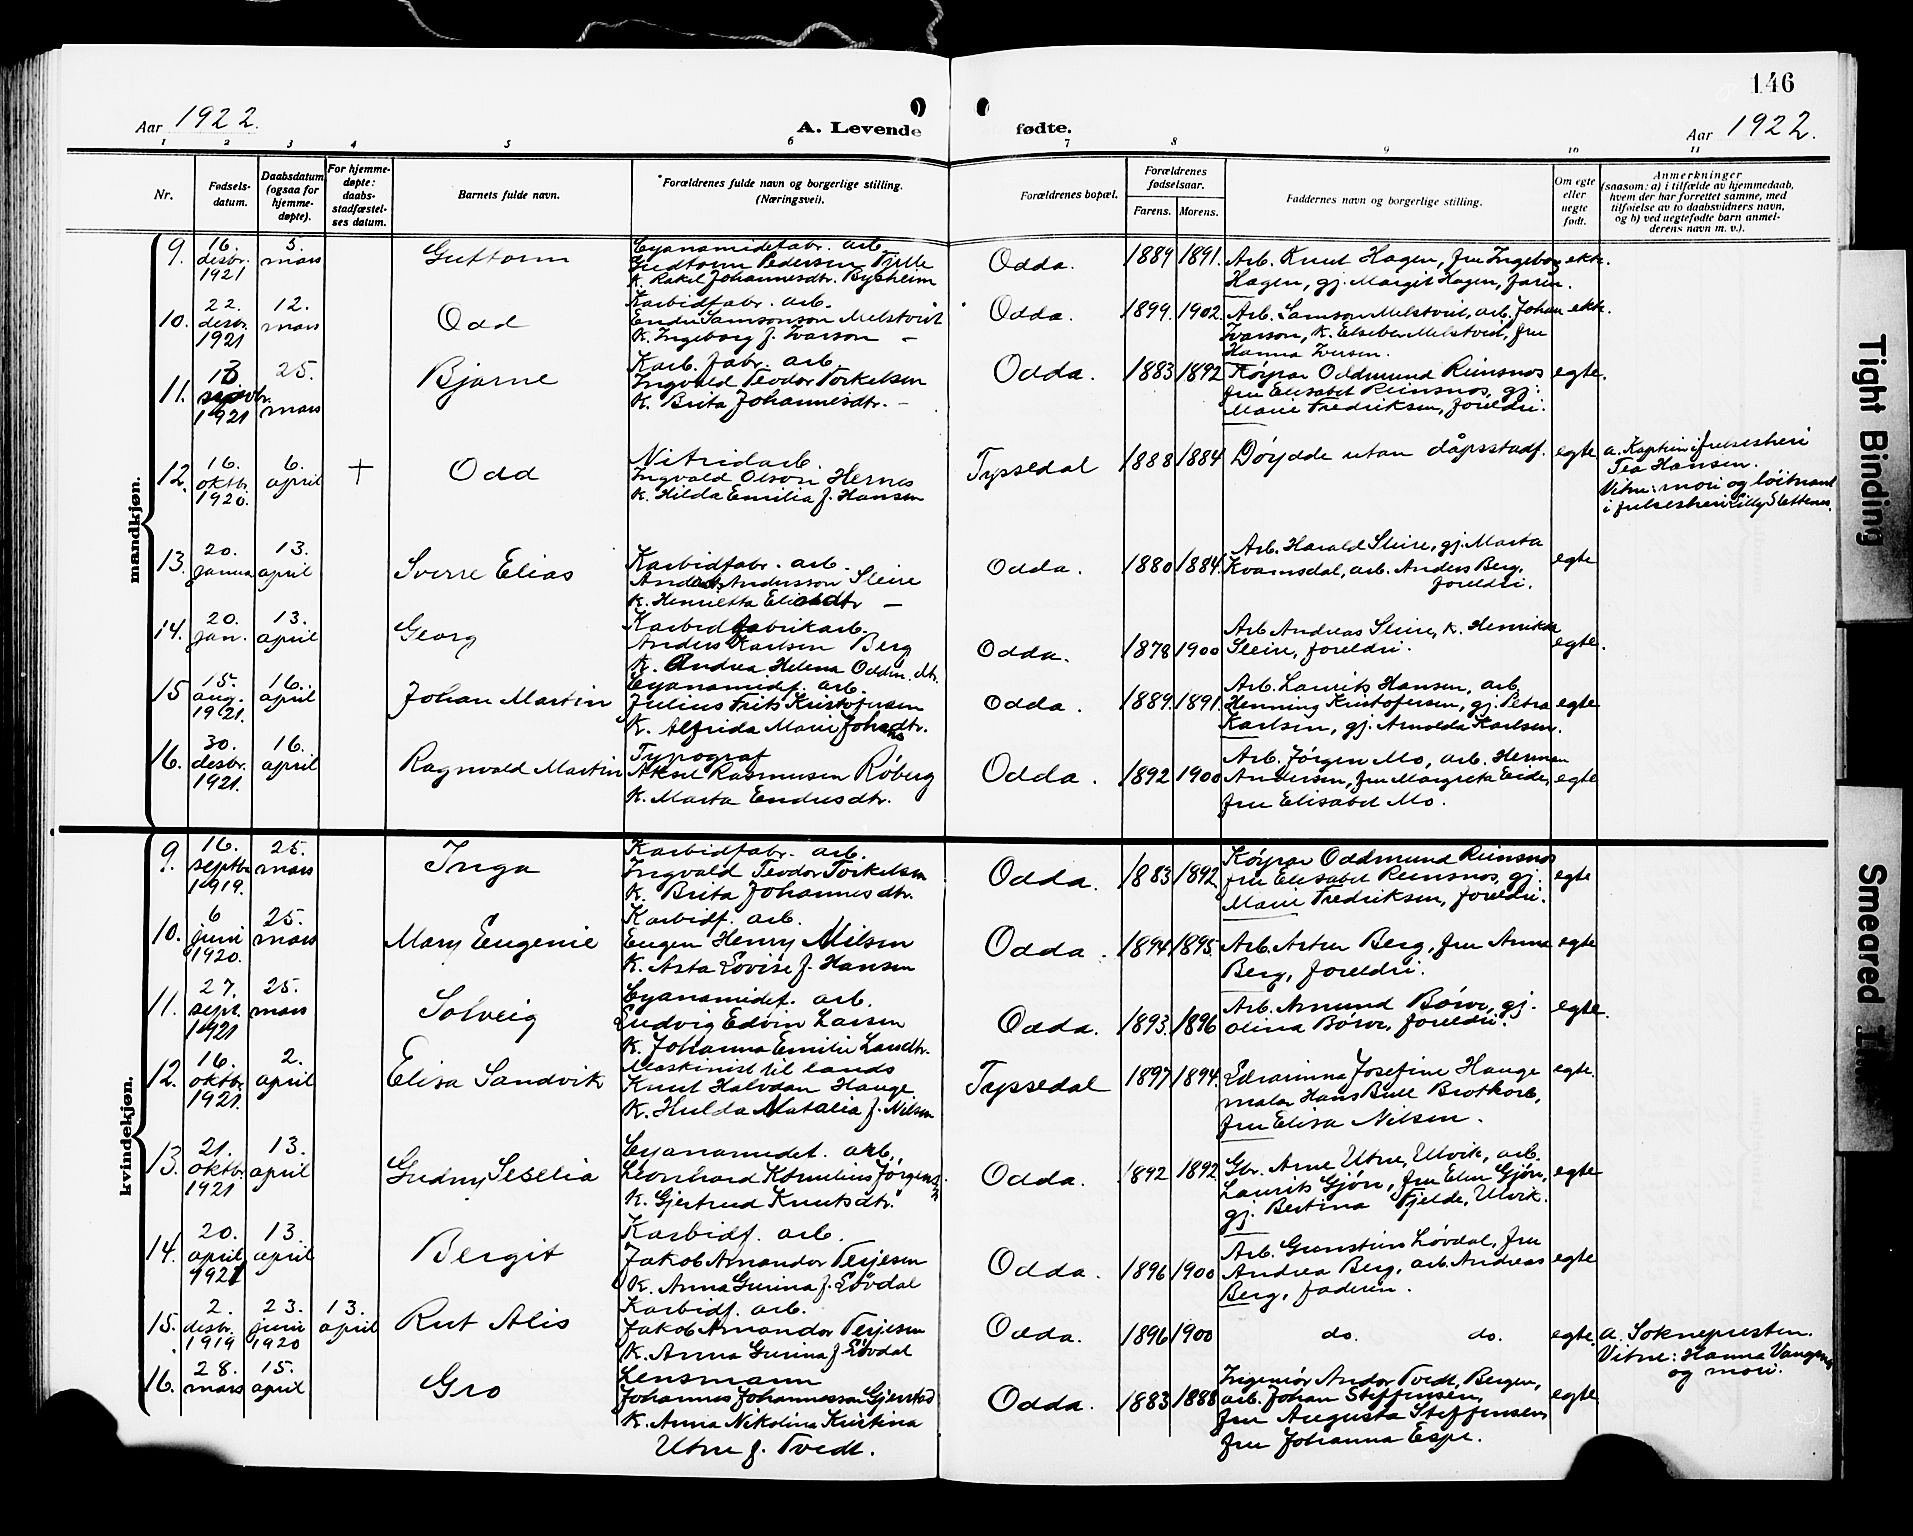 146
Aar 1922.
A. Levende fødte.
Aar 1922.
1 2 3 4 5 6 7 8 9 10 11
Nr.
Fødsels-
datum.
Daabsdatum
(ogsaa for
hjemme-
døpte).
For hjemme-
døpte:
daabs-
stadfæstel-
ses datum.
Barnets fulde navn.
Forældrenes fulde navn og borgerlige stilling.
(Næringsvei).
Forældrenes bopæl.
Forældrenes
fødselsaar.
Farens. Morens.
Faddernes navn og borgerlige stilling.
Om egte
eller
uegte
født.
Anmerkninger
(saasom: a) i tilfælde av hjemmedaab,
hvem der har forrettet samme, med
tilføielse av to daabsvidners navn,
og b) ved uegtefødte barn anmel-
derens navn m. v.).
mandkjøn.
9.
16.
desbr.
1921
5.
mars
Guttorm
Cyanamidfabr. arb.
Gudtorm Pedersen Tjelle
K. Rakel Johannesdtr. Bysheim
Odda.
1889 1891.
Arb. Knut Hagen, fru Ingeborg
Hagen, gj. Margit Hagen, faren.
ekte.
10.
22.
desbr.
1921
12.
mars
Odd
Karbidfabr. arb.
Endre Samsonson Melstveit
K. Ingeborg f. Ivarson —
Odda.
1899. 1902.
Arb. Samson Melstveit, arb. Johan
Ivarson, K. Elseber Melstveit, fru
Hanna Iversen.
ekte.
11.
18
1921
25.
mars
Bjarne
Karb. fabr. arb.
Ingvald Teodor Torkelsen
K. Brita Johannesdtr. —
Odda.
1883 1892
Køyrar Oddmund Reinsnos
fru Elisabet Reinsnos, gj.
Marie Fredriksen, foreldri.
egte.
12.
16.
oktbr.
1920.
6.
april
+
Odd
Nitridarb.
Ingvald Olson Hernes
K. Hilda Emilia f. Hansen
Tyssedal
1888 1884
Døydde utan dåpsstadf.
egte
a. Kaptein i frelsesheri
Tea Hansen.
Vitne: mori og løitnant
i frelsesheri Lilly Slettenes.
13.
20.
janua
13.
april
Sverre Elias
Karbidfabr. arb.
Andersson Sleire
K. Henrietta Eliasdtr —
Odda.
1880 1884.
Arb. Harald Sleire, gj. Marta
Kvamsdal, arb. Anders Berg.
foreldri.
egte
14.
20.
jan.
13.
april
Georg
Karbidfabrikarb.
Anders Karlsen Berg
K. Andrea Helena Oddm. dtr.
Odda.
1878 1900
Arb Andreas Sleire, K. Henrikka
Sleire, foreldri.
egte.
15
15.
aug.
1921.
16.
april
Johan Martin
Cyanamidf. arb.
Julius Frits Kristofersen
K. Alfrida Marie Johansdtr.
Odda.
1889. 1891.
Arb. Laurits Hansen, arb.
Henning Kristofersen, gj. Petra
Karlsen, gj. Arnolda Karlsen.
egte
16.
30.
desbr.
1921.
16.
april
Ragnvald Martin
Typograf
Aksel Rasmussen Røberg
K. Marta Endresdtr.
Odda.
1892 1900
Arb. Jørgen Mo, arb. Herman
Andersen, fru Margreta Eide,
fru Elisabet Mo.
egte
kvindekjøn.
9.
16.
septbr.
1919.
25.
mars
Inga
Karbidfabr. arb.
Ingvald Teodor Torkelsen
K. Brita Johannesdtr.
Odda.
1883 1892
Køyrar Oddmund Reinsnos
fru Elisabet Reinsnos, gj.
Marie Fredriksen, foreldri.
egte
10.
6
juni
1920.
25.
mars
Mary Eugenie
Karbidf. arb.
Eugen Henry Nilsen
K. Asta Lovise f. Hansen
Odda.
1894 1895.
Arb. Artur Berg, fru Anna
Berg, foreldri.
egte
11.
27.
sept.
1921
25.
mars
Solveig
Cyanamidf. arb.
Ludvig Edvin Larsen
K. Johanna Emilie Larsdtr.
Odda.
1893. 1896
Arb. Amund Børve, gj.
Olina Børve, foreldri.
egte.
12.
16.
oktbr.
1921.
2.
april
Elisa Sandvik
Maskinist til lands
Knut Halvdan Hauge
K. Hulda Natalia f. Nilsen
Tyssedal
1897 1894.
Edvarinna Josefine Hauge
malar Hans Bull Brotkorb,
fru Elisa Nilsen.
egte.
13.
21.
oktbr.
1921
13.
april
Gudny Seselia
Cyanamidet. arb.
Leonhard Kornilius Jørgensen
K. Gjertrud Knutsdtr.
Odda.
1892 1892
Gbr. Arne Utne, Ulvik, arb.
Laurits Gjøn, fru Elen Gjøn,
gj. Bertina Fjelde, Ulvik.
egte
14.
20.
april
1921
13.
april
Bergit
Karbidf. arb.
Jakob Amandor Terjesen
K. Anna Gurina f. Løvdal
Odda.
1896 1900
Arb. Gunstein Løvdal, fru
Andrea Berg, arb. Andreas
Berg, faderen.
egte
15.
2.
desbr.
1919
23.
juni
1920
13.
april
Rut Alis
Karbidf. arb.
Jakob Amandor Terjesen
K. Anna Gurina f. Løvdal
Odda.
1896 1900
do. do.
egte.
a. Soknepresten.
Vitne: Hanna Vangsnes
og mori.
16.
28.
mars
15.
april
Gro
Lensmann
Johannes Johannesson Gjerstad
K. Anna Nikolina Kristina
Utne f. Tvedt.
Odda.
1883 1888
Ingeniør Andor Tvedt, Bergen,
arb. Johan Steffensen,
fru Augusta Steffensen,
fru Johanna Espe.
egte
Tight Binding
Smeared